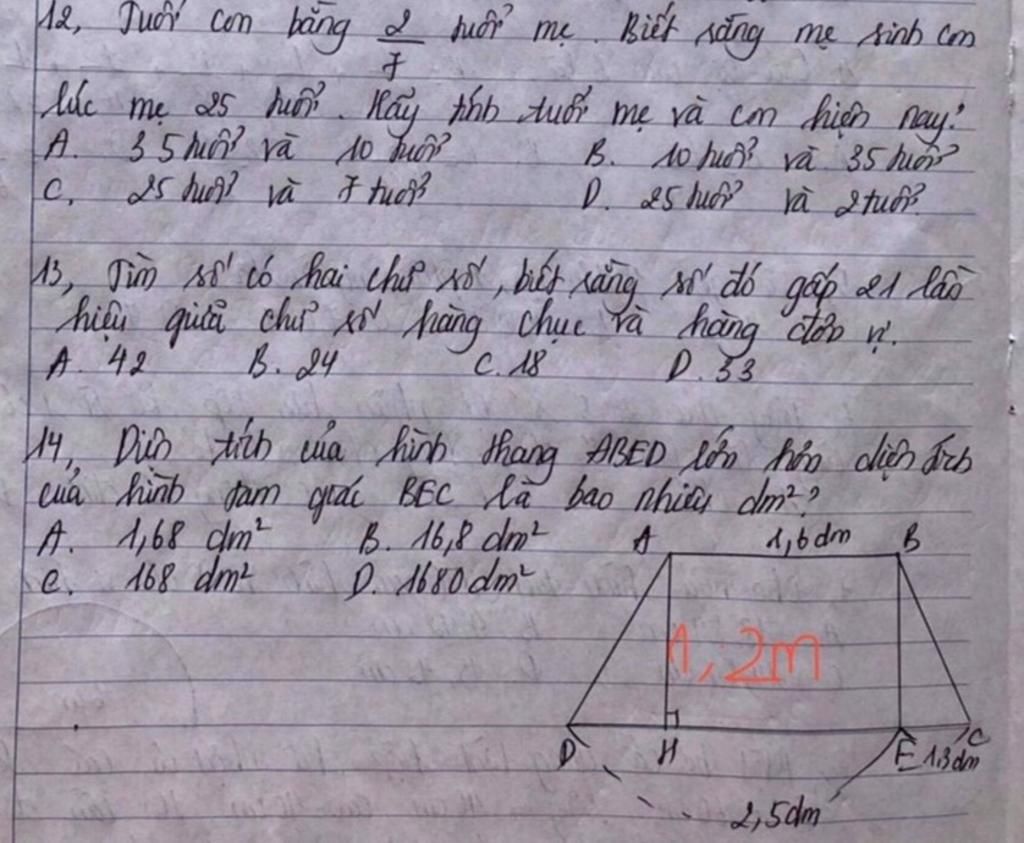 12, Tuổi con bằng 2/7 tuổi mẹ. Biết rằng mẹ sinh con
lúc mẹ 25 tuổi. Hãy tính tuổi mẹ và con hiện nay?
A. 35 tuổi và 10 tuổi B. 10 tuổi và 35 tuổi
C. 25 tuổi và 7 tuổi D. 25 tuổi và 2 tuổi.
13, Tìm số có hai chữ số, biết rằng số đó gấp 21 lần
hiệu giữa chữ số hàng chục và hàng đơn vị.
A. 42 B. 24 C. 18 D. 33
14, Diện tích của hình thang ABED lớn hơn diện tích
của hình tam giác BEC là bao nhiêu dm²?
A. 1,68 dm² B. 16,8 dm²
C. 168 dm² D. 1680 dm²
A 1,6 dm B
1,2m
D H E 1.3dm C
2,5dm